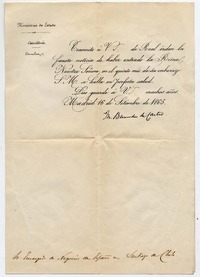 Ministerio de Estado
Cancillería
Transmito á V. S. de Real orden la
fausta noticia de haber entrado la Reina
Nuestra Señora, en el quinto mes de su embarazo.
S. M. se halla en perfecta salud.
Dios guarde á V. S. muchos años.
Madrid 16 de Setiembre de 1865.
M. Bermudez de Castro
Sr. Encargado de Negocios de España en Santiago de Chile